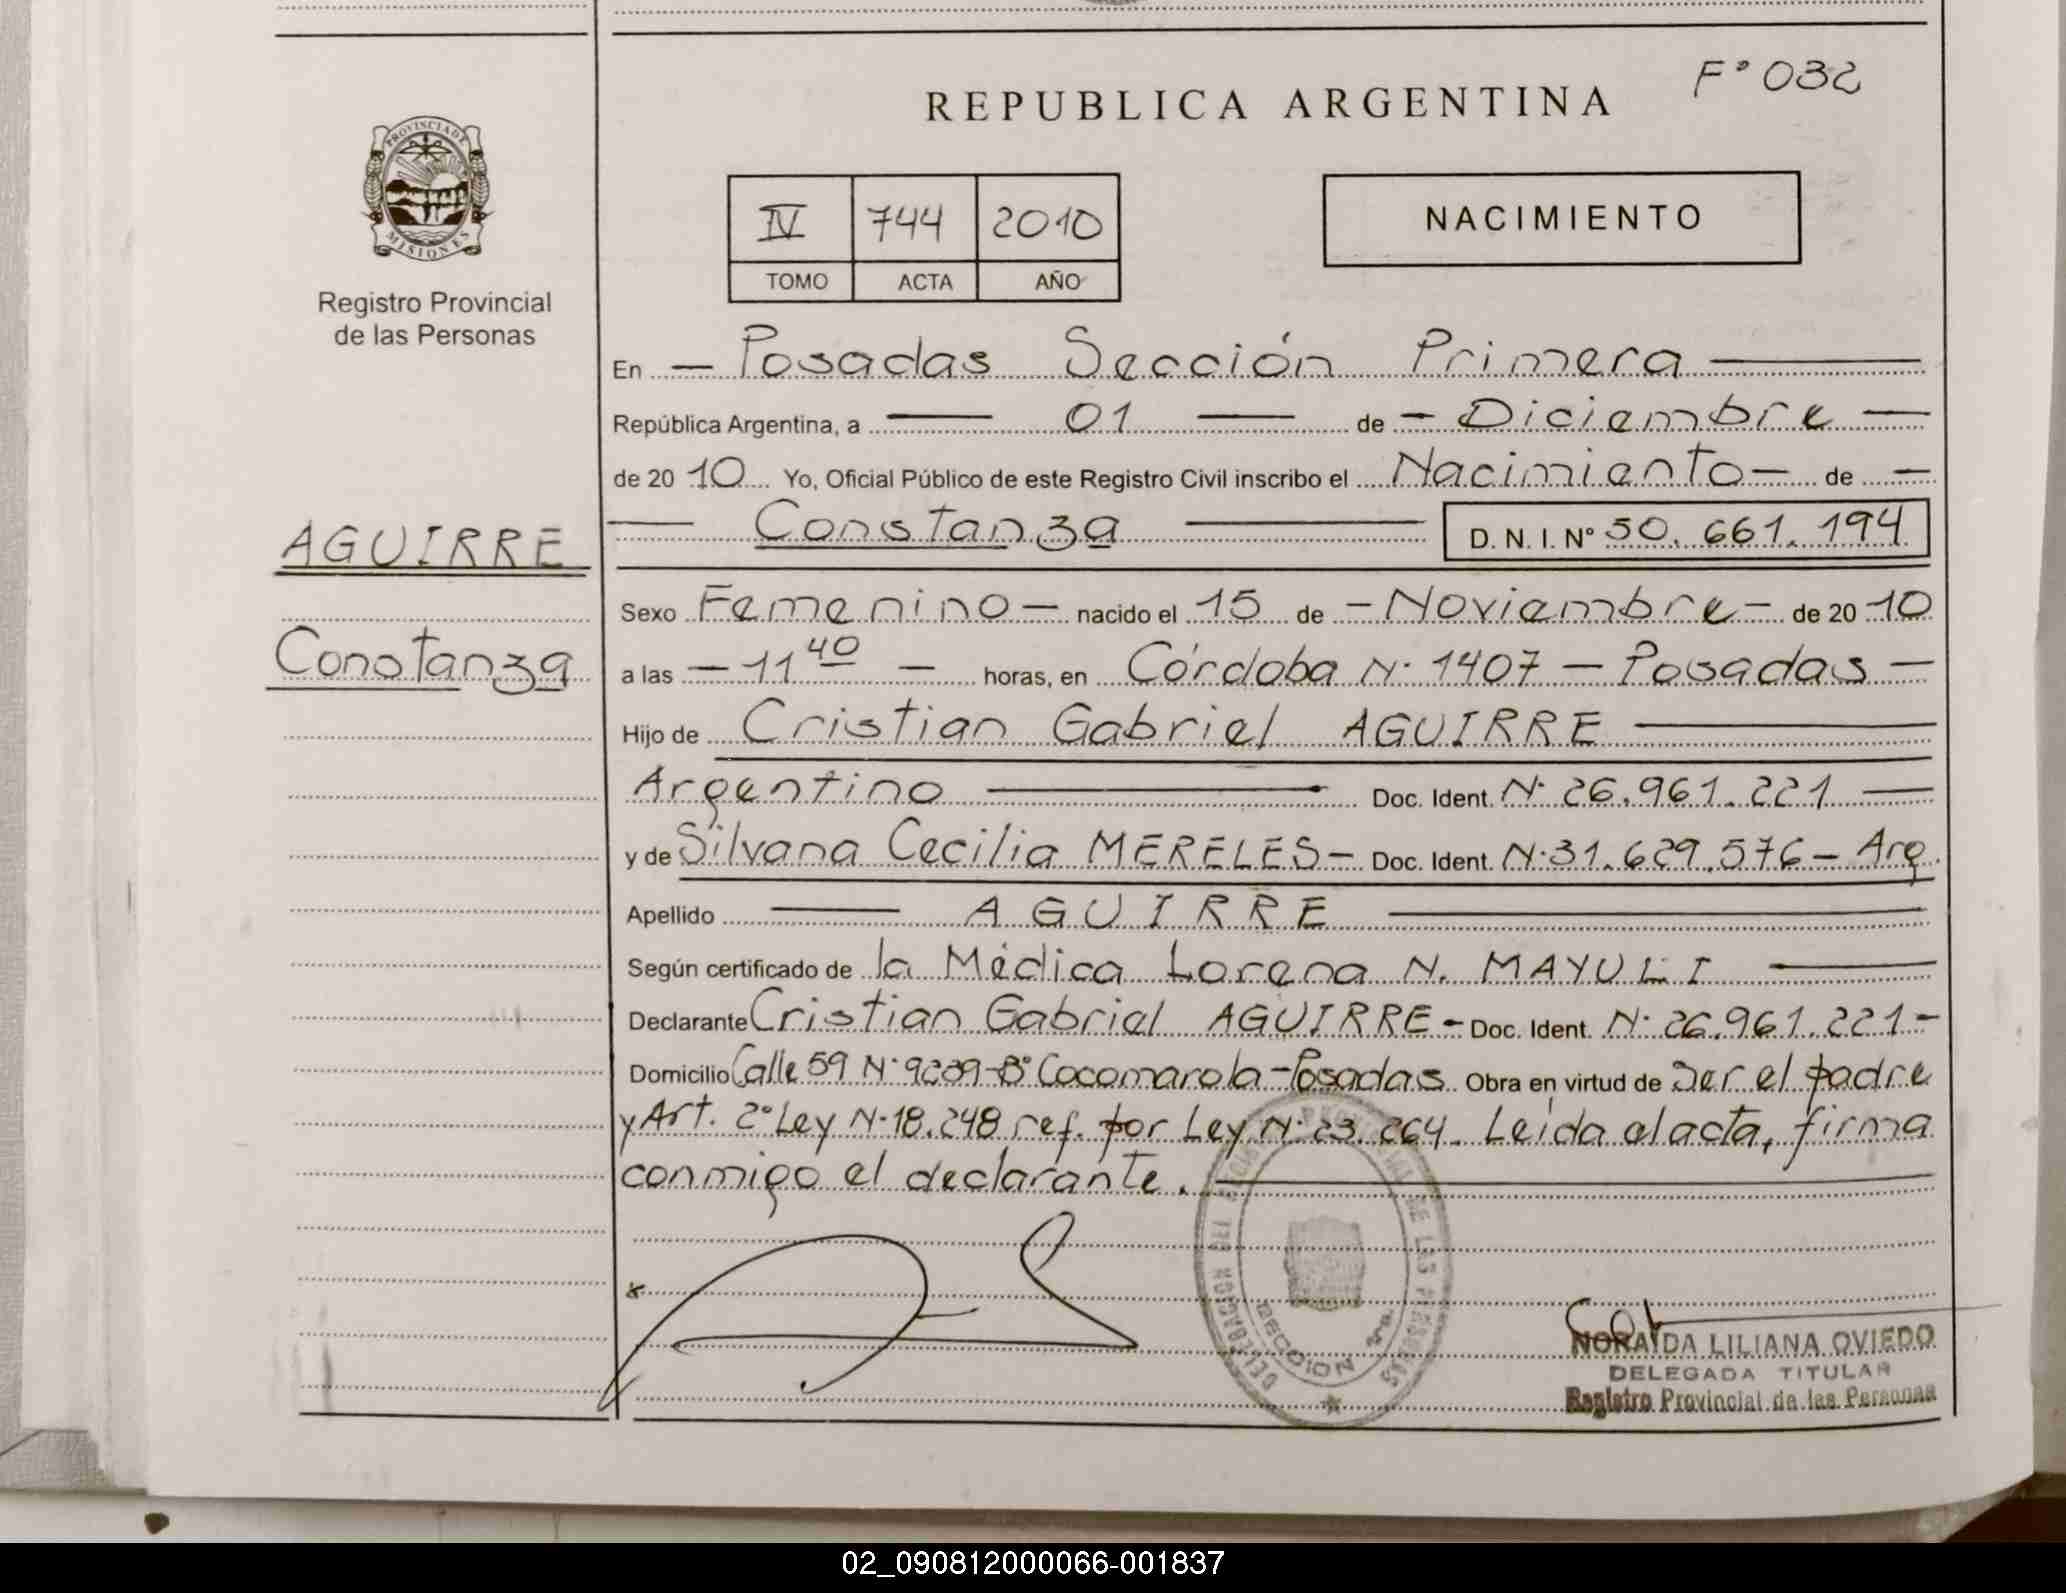 F° 032
REPUBLICA ARGENTINA
PROVINCIA DE
MISIONES
Registro Provincial
de las Personas
IV 744 2010
TOMO ACTA AÑO
NACIMIENTO
En — Posadas Sección Primera —
República Argentina, a — 01 — de — Diciembre —
de 20 10 Yo, Oficial Público de este Registro Civil inscribo el Nacimiento — de —
— Constanza — D. N. I. Nº 50.661.194
AGUIRRE
Constanza
Sexo Femenino — nacido el 15 de — Noviembre — de 20 10
a las — 11 40 — horas, en Córdoba N° 1407 — Posadas —
Hijo de Cristian Gabriel AGUIRRE —
Argentino — Doc. Ident. N° 26.961.221 —
y de Silvana Cecilia MERELES — Doc. Ident. N° 31.629.576 — Arg.
Apellido — AGUIRRE —
Según certificado de la Médica Lorena N. MAYULI —
Declarante Cristian Gabriel AGUIRRE — Doc. Ident. N° 26.961.221 —
Domicilio Calle 59 N° 9239 - B° Cocomarola - Posadas Obra en virtud de ser el padre
y Art. 2° Ley N° 18.248 ref. por Ley N° 23.264. Leída el acta, firma
conmigo el declarante. —
DELEGACION DEL REGISTRO PROVINCIAL DE LAS PERSONAS
SECCION 1ra.
NORAIDA LILIANA OVIEDO
DELEGADA TITULAR
Registro Provincial de las Personas
02_090812000066-001837